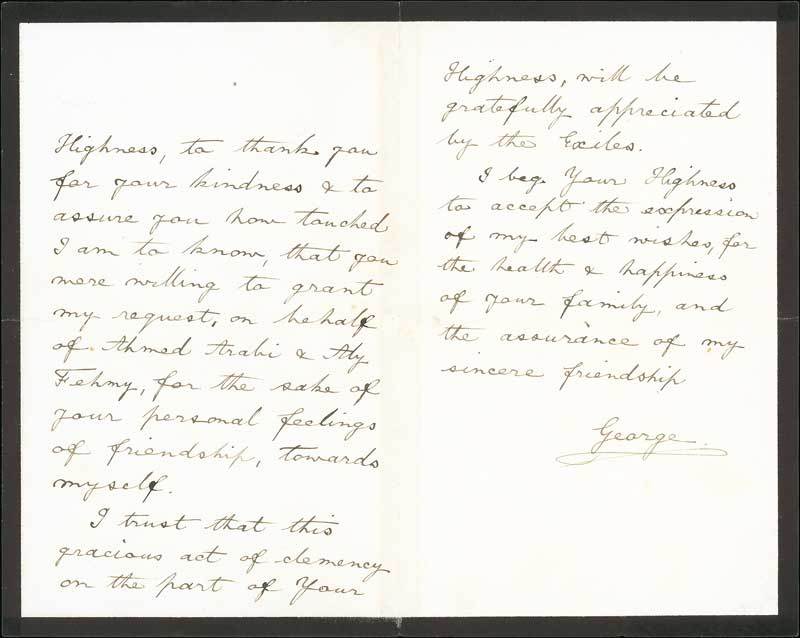 Highness, to thank you
for your kindness & to
assure you how touched
I am to know, that you
were willing to grant
my request, on behalf
of Ahmed Arabi & Aly
Fehmy, for the sake of
your personal feelings
of friendship, towards
myself.
I trust that this
gracious act of clemency
on the part of Your
Highness, will be
gratefully appreciated
by the Exiles.
I beg Your Highness
to accept the expression
of my best wishes, for
the health & happiness
of your family, and
the assurance of my
sincere friendship
George.